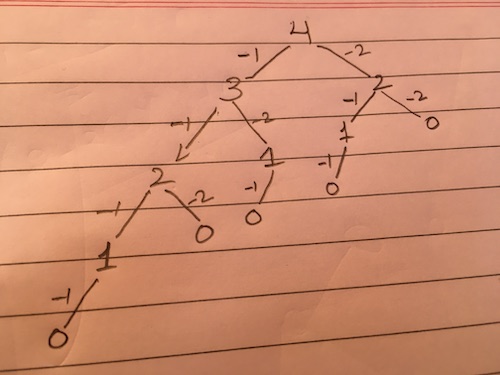 4
-1 -2
3 2
-1 -2 -1 -2
2 1 1 0
-1 -2 -1 -1
1 0 0 0
-1
0